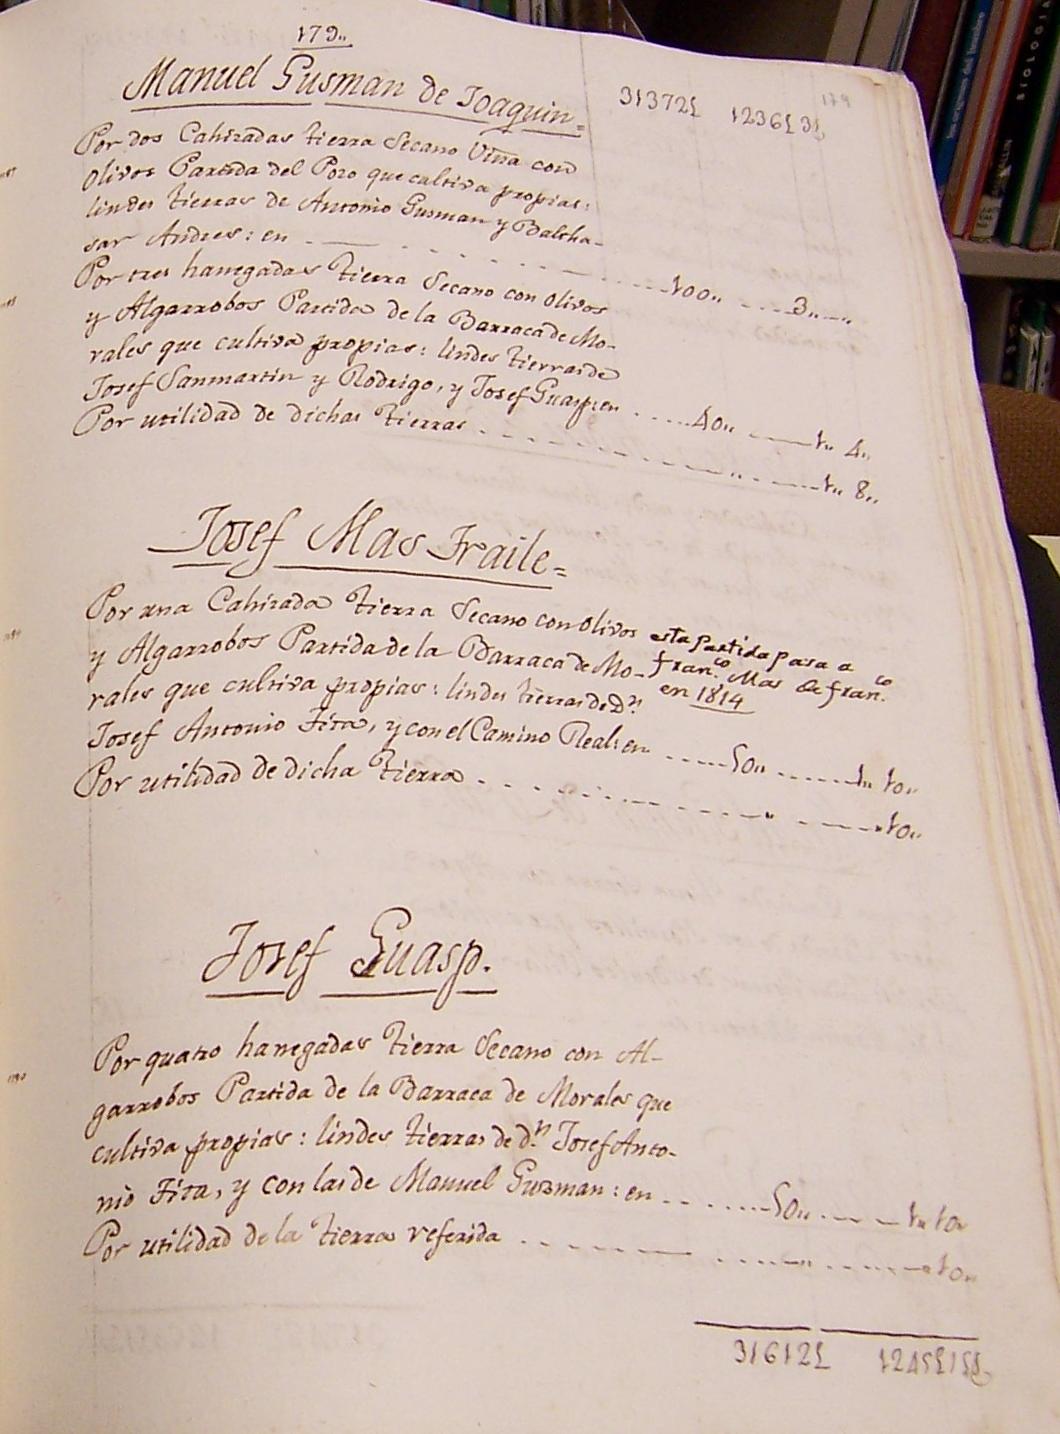 179..
Manuel Gusman de Joaquin=
31372£ 1236£3
179
Por dos Cahizadas tierra Secano Viña con
Olivos Partida del Pozo que cultiva propias:
lindes tierras de Antonio Gusman y Baltha-
sar Andres: en 100.. 3..
Por tres hanegadas tierra Secano con olivos
y Algarrobos Partida de la Barraca de Mo-
rales que cultiva propias: lindes tierras de
Josef Sanmartin y Rodrigo, y Josef Guasp: en 40.. 1.. 4..
Por utilidad de dichas tierras 1.. 8..
Josef Mas Fraile=
Por una Cahizada tierra Secano con olivos
y Algarrobos Partida de la Barraca de Mo-
rales que cultiva propias: lindes tierras de Dn
Josef Antonio Fita, y con el Camino Real: en 50.. 1.. 10..
Por utilidad de dicha tierra 10..
esta partida pasa a
Franco Mas de Franco
en 1814
Josef Guasp.
Por quatro hanegadas tierra Secano con Al-
garrobos Partida de la Barraca de Morales que
cultiva propias: lindes tierras de dn Josef Anto-
nio Fita, y con las de Manuel Guzman: en 50.. 1.. 10..
Por utilidad de la tierra referida 10..
31612£ 1245£15